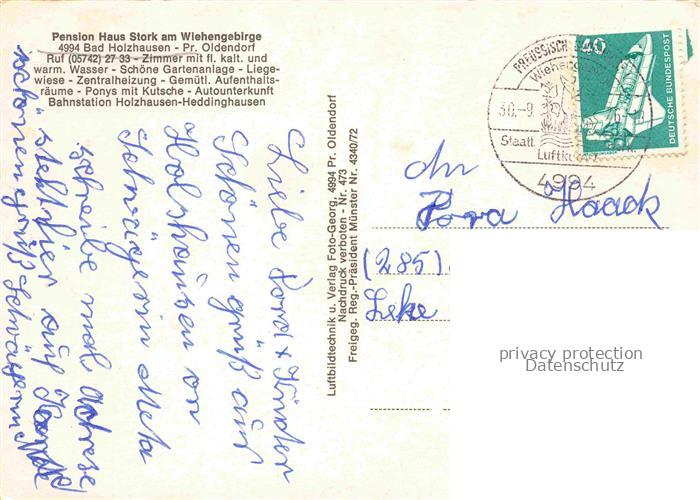 Pension Haus Stork am Wiehengebirge
4994 Bad Holzhausen - Pr. Oldendorf
Ruf (05742) 27 33 - Zimmer mit fl. kalt. und
warm. Wasser - Schöne Gartenanlage - Liege-
wiese - Zentralheizung - Gemütl. Aufenthalts-
räume - Ponys mit Kutsche - Autounterkunft
Bahnstation Holzhausen-Heddinghausen
Liebe Dora + Kinder
Schönen gruß aus
Holshausen von
Schwägerin Meta
schreibe mal Adrese
steht hier auf Karte
schönen gruß Schwägerin
Luftbildtechnik u. Verlag Foto-Georg, 4994 Pr. Oldendorf
Nachdruck verboten - Nr. 473
Freigeg. Reg.-Präsident Münster Nr. 4340/72
PREUSSISCH
Wiehengebirge
30.-9.
Staatl.
Luftkurort
4994
40
DEUTSCHE BUNDESPOST
An
Dora Haack
(285)
privacy protection
Datenschutz